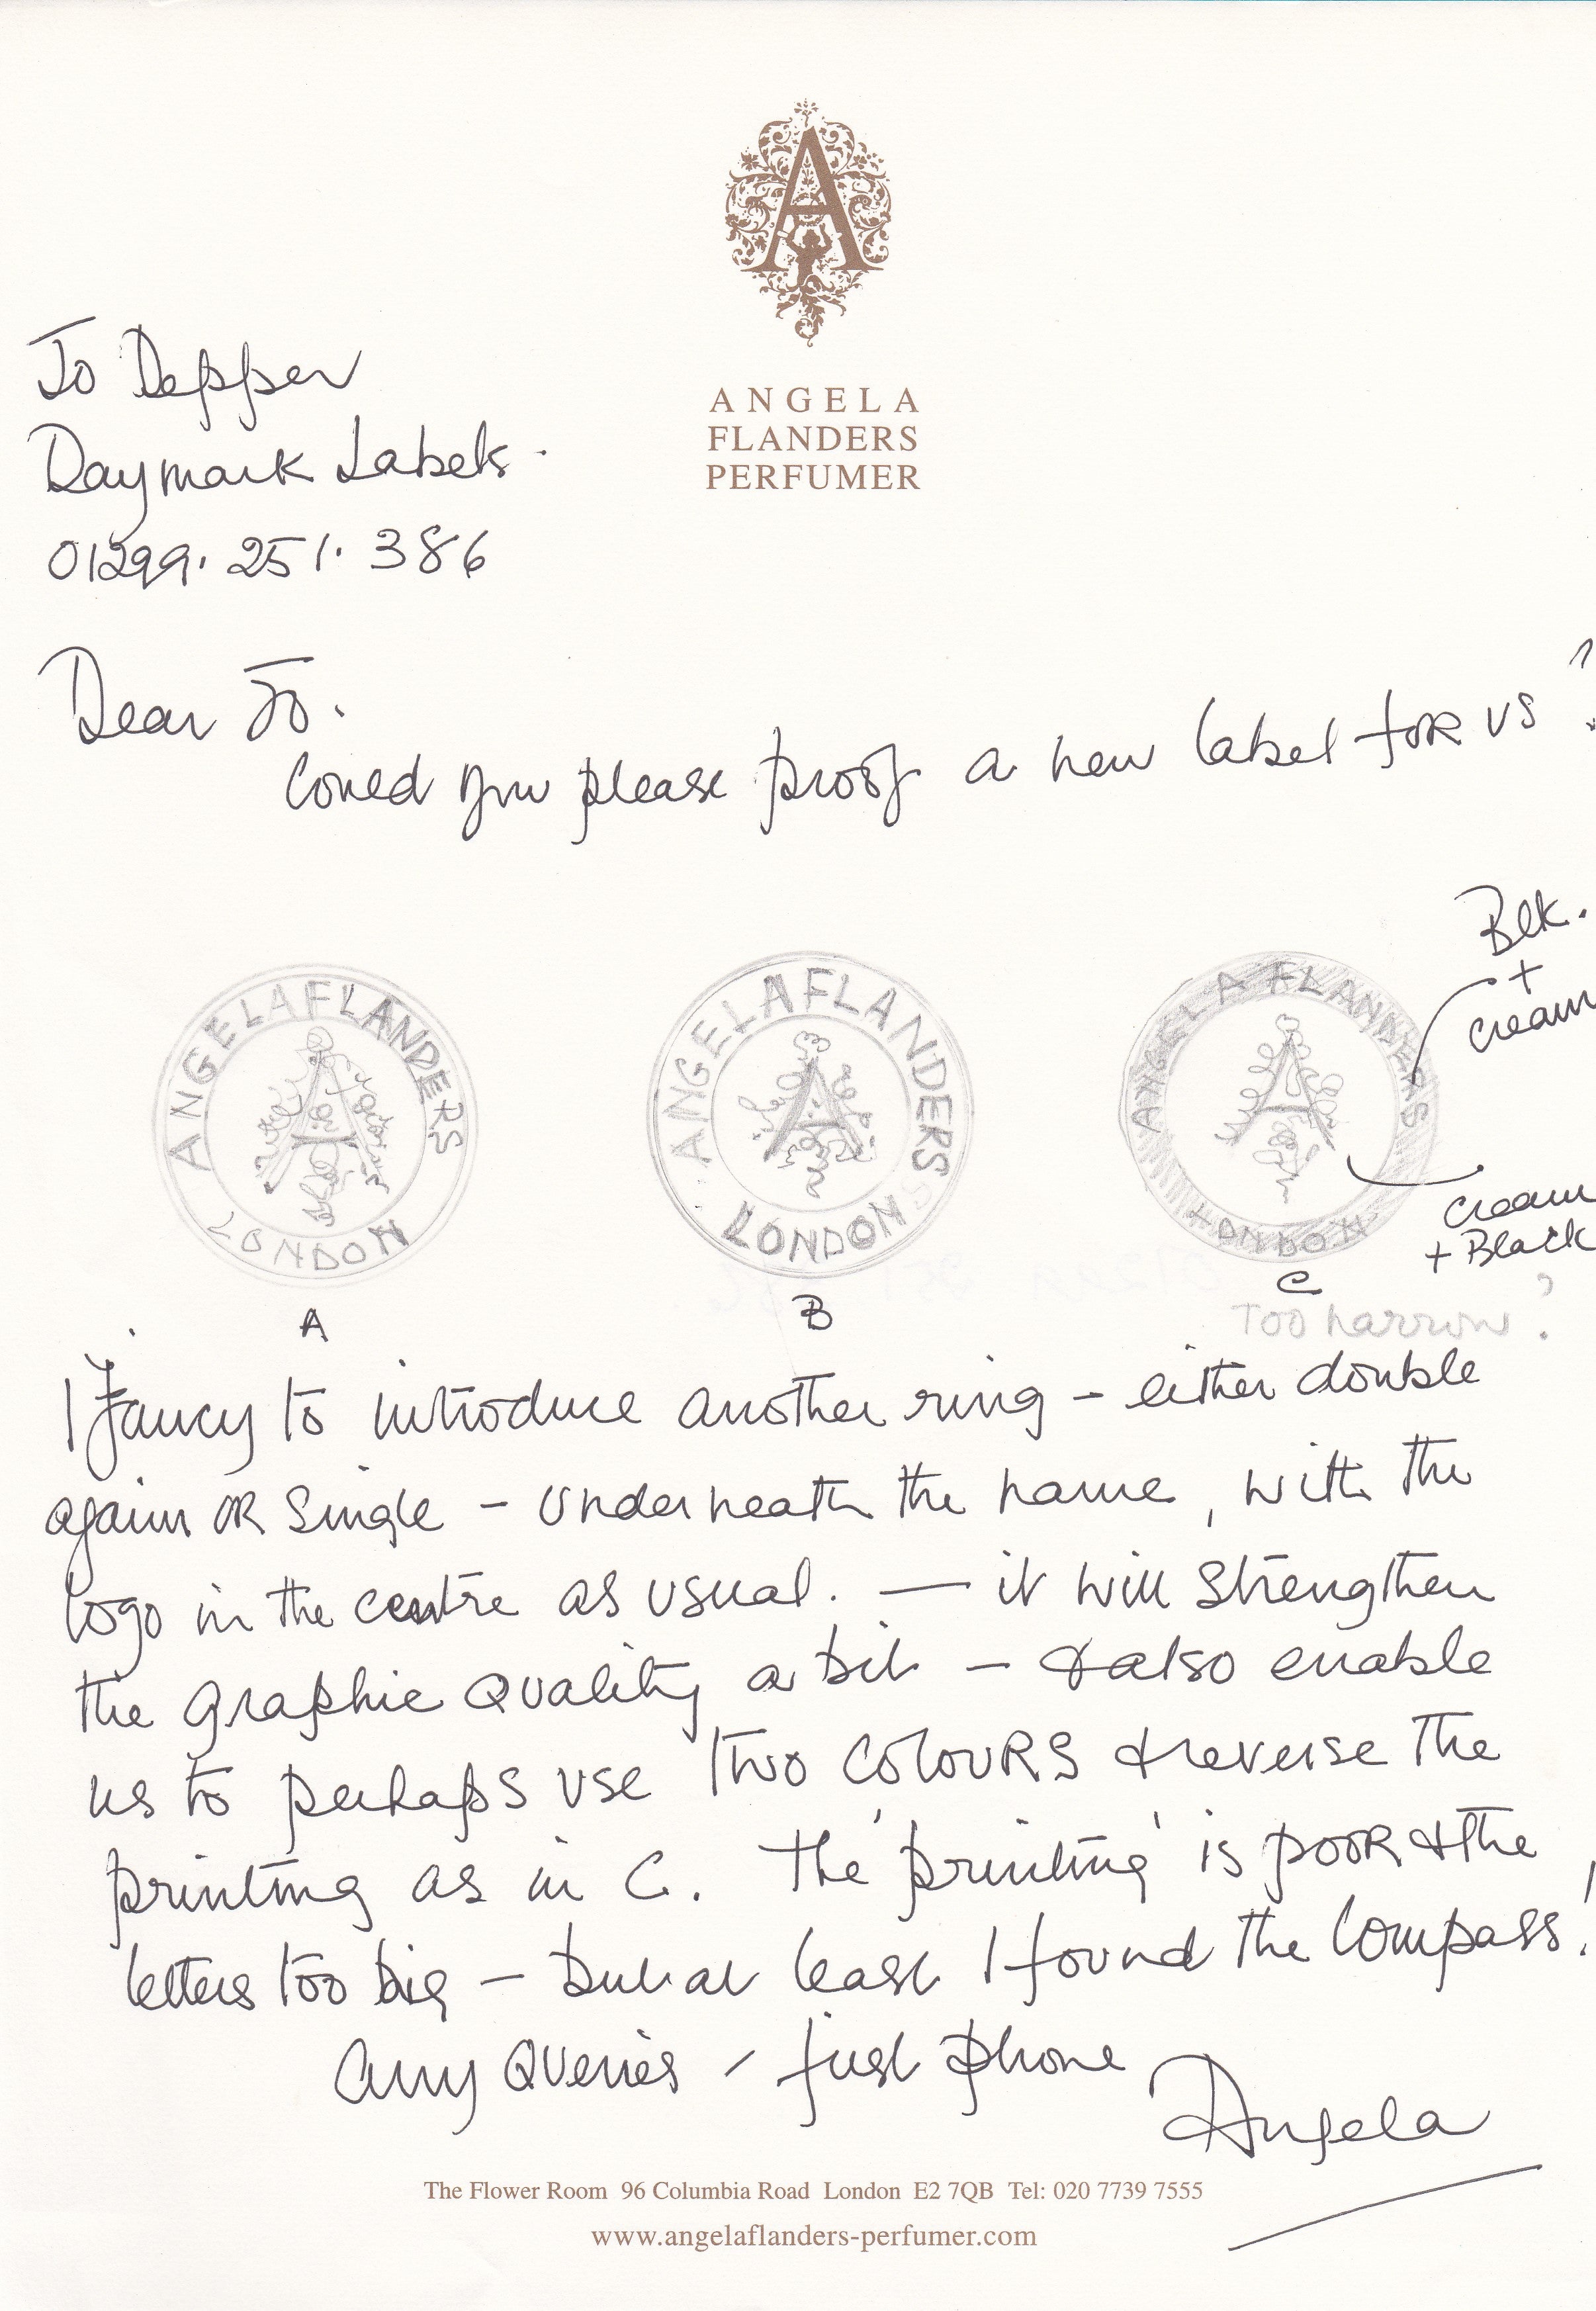 A
ANGELA
FLANDERS
PERFUMER
Jo Depper
Daymark Labels.
01299. 251. 386
Dear Jo.
Could you please proof a new label for us?
Blk.
+
cream
ANGELA FLANDERS
LONDON
A
ANGELA FLANDERS
LONDON
A
ANGELA FLANDERS
LONDON
A
cream
+ Black
A
B
C
Too narrow?
I fancy to introduce another ring – either double
again OR single – underneath the name, with the
logo in the centre as usual. — it will strengthen
the graphic quality a bit – & also enable
us to perhaps use two colours & reverse the
printing as in C. The 'printing' is poor & the
letters too big – but at least I found the compass!
Any queries – just phone
Angela
The Flower Room 96 Columbia Road London E2 7QB Tel: 020 7739 7555
www.angelaflanders-perfumer.com